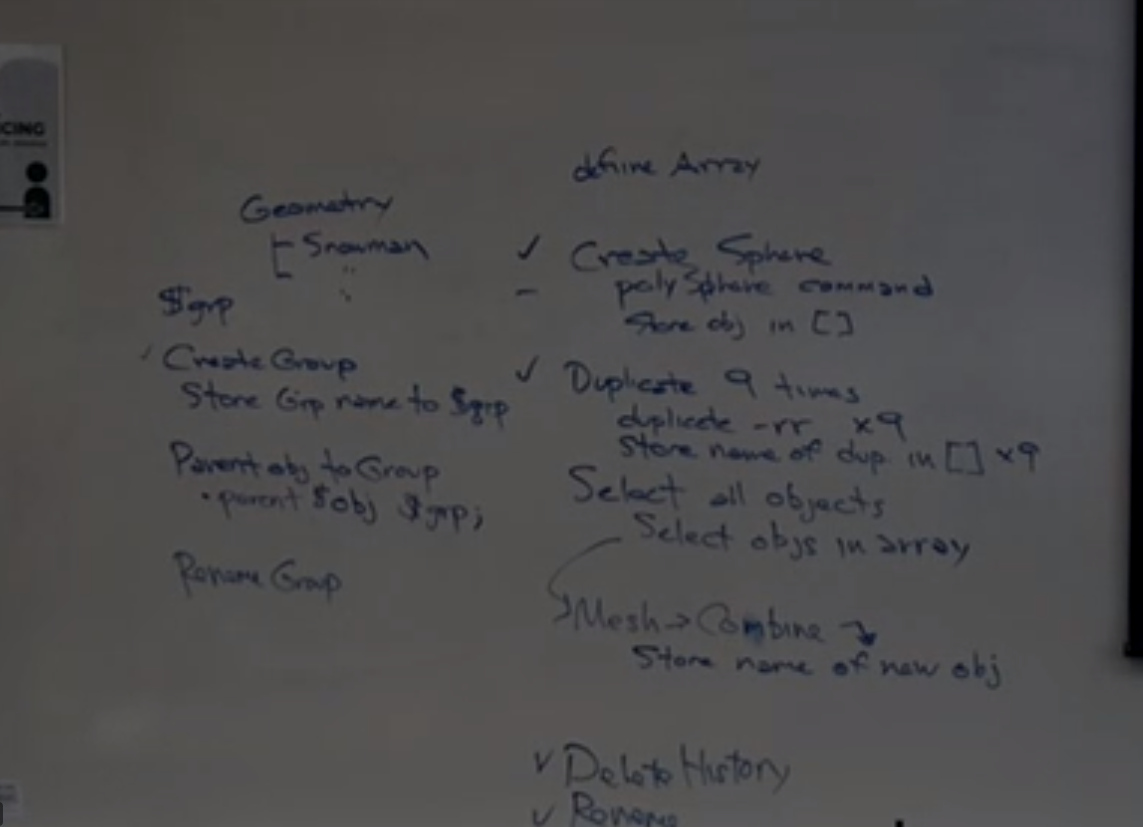 CING
Geometry
Snowman
"
$grp
Create Group
Store Grp name to $grp
Parent obj to Group
• parent $obj $grp;
Rename Group
define Array
✓ Create Sphere
- polySphere command
Store obj in []
✓ Duplicate 9 times
duplicate -rr x9
Store name of dup. in [] x9
Select all objects
Select objs in array
Mesh → Combine
Store name of new obj
✓ Delete History
✓ Rename